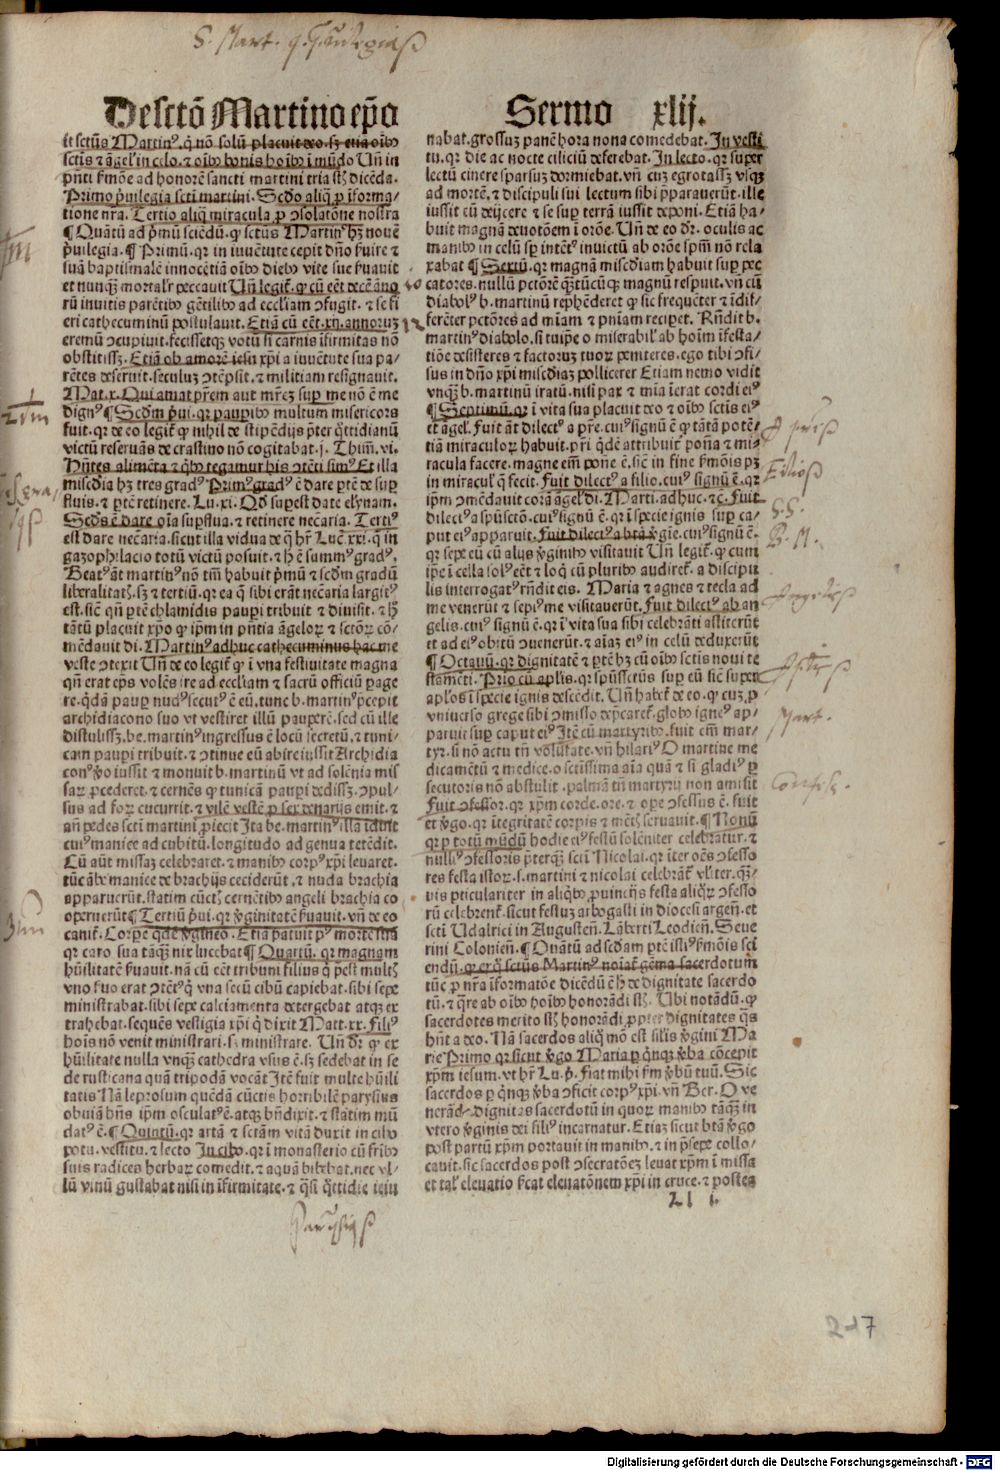 De sctō Martino ep̄o
Sermo xlij.
sctis ⁊ āgel' in celo. ⁊ oīb9 bonis hoīb9 ī mūdo Uñ in
pñti f'mōe ad honorē sancti martini tria st' dicēda.
Primo p'uilegia scti martini. Scdo aliq̄ p īforma/
tione nra. Tertio aliq̄ miracula p ɔsolatōne nostra
¶ Quātū ad p'mū sciēdū. ꝙ sctūs Martin9 hꝫ nouē
p'uilegia. ¶ Primū. qꝛ in iuuētute cepit dn̄o f'uire ⁊
suā baptismalē innocētiā oīb9 dieb9 vite sue f'uauit
et nunqꝫ mortal'r peccauit Un̄ legit'. ꝙ cū eēt decē āno
rū inuitis parētib9 gētilib9 ad eccl'iam ɔfugit. ⁊ se fi
eri cathecuminū postulauit. Etiā cū eēt. xij. annoruꝫ
eremū ɔcupiuit. fecissetqꝫ votū si carnis īfirmitas nō
obstitissꝫ. Etiā ob amorē iesu xp̄i a iuuētute sua pa/
rētes deseruit. seculuꝫ ɔtēpsit. ⁊ militiam resignauit.
Mat. x. Qui amat prēm aut mr̄eꝫ sup me nō ē me
dign9 ¶ Scdm p'ui. qꝛ paupib9 multum misericors
fuit. qꝛ de eo legit' ꝙ nihil de stipēdijs p̄ter q̄ttidianū
victū reseruās de crastino nōn cogitabat. j. Thim. vi.
Hñtes alimēta ⁊ q̄b9 tegamur his ɔtēti sim9 Et illa
misc̄dia hꝫ tres grad9 Prim9 grad9 ē dare ptē de sup
fluis. ⁊ ptē retinere. Lu. xi. Qd̄ supest date elynam.
Scds ē dare oīa supflua. ⁊ retinere nec̄aria. Terti9
est dare nec̄aria. sicut illa vidua de q̄ hr̄ Luc̄. xxi. q̄ in
gazophilacio totū victū posuit. ⁊ h' ē summ9 grad9.
Beat9 āt martin9 nō tm̄ habuit p'mū ⁊ scdm gradū
liberalitat'. sꝫ ⁊ tertiū. qꝛ ea q̄ sibi erāt nec̄aria largit9
est. sic q̄n ptē chlamidis paupi tribuit ⁊ diuisit. ⁊ h'
tātū placuit xp̄o ꝙ ip̄m in pñtia āgeloꝝ ⁊ sctōꝝ cō/
mēdauit di. Martin9 adhuc cathecuminus hac me
veste ɔtexit Un̄ de eo legit' ꝙ ī vna festiuitate magna
qn̄ erat ep̄s volēs ire ad eccl'iam ⁊ sacrū officiū page
re. q̄dā paup nud9 secut9 ē eū. tunc b. martin9 p̄cepit
archidiacono suo vt vestiret illū paupērē. sed cū ille
distulissꝫ. be. martin9 ingressus ē locū secretū. ⁊ tuni/
cam paupi tribuit. ⁊ ɔtinue eū abire iussit Archidia
con9 ṽo iussit ⁊ monuit b. martinū vt ad solēnia mis
saꝝ pcederet. ⁊ cernēs ꝙ tunicā paupi dedissꝫ. ɔpul/
sus ad foꝝ cucurrit. ⁊ vilē vestē p sex denarijs emit. ⁊
añ pedes scti martini piecit Ita be. martin9 illā īduit
cui9 manice ad cubitū. longitudo ad genua tetēdit.
Cū aūt missaꝫ celebraret. ⁊ manib9 corp9 xp̄i leuaret.
tūc ābe manice de brachijs ceciderūt. ⁊ nuda brachia
apparuerūt. statim cūct' cernētib9 angeli brachia co
operuerūt ¶ Tertiū p'ui. qꝛ ṽginitatē f'uauit. vn̄ de eo
canit'. Corpe q'dē ṽgineo. Etiā patuit p9 mortē sua
qꝛ caro sua tāqꝫ nix lucebat ¶ Quartū. qꝛ magnam
hūilitatē f'uauit. nā cū eēt tribuni filius q̄ p̄est mult'
vno suo erat ɔtēt9 q̄ vna secū cibū capiebat. sibi sepe
ministrabat. sibi sepe calciamenta detergebat atqꝫ ex
trahebat. sequēs vestigia xp̄i q̄ dixit Matt. xx. Fili9
hoīs nō venit ministrari. sꝫ ministrare. Un̄ dr̄ ꝙ ex
hūilitate nulla vnqꝫ cathedra vsus ē. sꝫ sedebat in se
de rusticana quā tripodā vocāt Itē fuit multe hūili
tatis Nā leprosum quēdā cūctis horribilē parysius
obuiā hn̄s ip̄m osculat9 ē. atqꝫ bn̄dixit. ⁊ statim mū
dat9 ē. ¶ Quītū. qꝛ artā ⁊ sctām vitā duxit in cibo
potu. vestitu. ⁊ lecto In cibo. qꝛ ī monasterio cū frīb9
suis radices herbaꝝ comedit. ⁊ aquā bibebat. nec vl/
lū vinū gustabat nisi in īfirmitate. ⁊ q̄si q̄ttidie ieiu
nabat. grossuꝫ panē hora nona comedebat. In vesti
tu. qꝛ die ac nocte ciliciū deferebat. In lecto. qꝛ super
lectū cinere sparsuꝫ dormiebat. vn̄ cuꝫ egrotassꝫ vsqꝫ
ad mortē. ⁊ discipuli sui lectum sibi p̄pararuerūt. ille
iussit cū deijcere ⁊ se sup terrā iussit deponi. Etiā ha/
buit magnā deuotōem ī orōe. Un̄ de eo dr̄. oculis ac
manib9 in celū sp intēt9 inuictū ab orōe spm̄ nō rela
xabat ¶ Sextū. qꝛ magnā misc̄diam habuit sup pec
catores. nullū pctōrē q̄ntūcūqꝫ magnū respuit. vn̄ cū
diabol9 b. martinū rep̄henderet ꝙ sic frequēter ⁊ īdif/
ferēter pctōres ad mīam ⁊ pn̄iam recipet. Rn̄dit b.
martin9 diabolo. si tuip̄e o miserabil' ab hoīm īfesta/
tiōe desisteres ⁊ factoruꝫ tuoꝝ peniteres. ego tibi ɔfi/
sus in dn̄o xp̄i misc̄diaꝫ pollicerer Etiam nemo vidit
vnqꝫ b. martinū iratū. nisi pax ⁊ mīa īerat cordi ei9
¶ Septimū. qꝛ ī vita sua placuit deo ⁊ oīb9 sctis ei9
et āgel'. Fuit āt dilect9 a pr̄e. cui9 signū ē ꝙ tātā potē/
tiā miraculoꝝ habuit. pri q'dē attribuit' poña ⁊ mi/
racula facere. magne eīm pone ē. sic in fine f'mōis pꝫ
in miracul' q̄ fecit. Fuit dilect9 a filio. cui9 signū ē. qꝛ
ip̄m ɔmēdauit corā āgel' di. Marti. adhuc. ⁊c̄. Fuit
dilect9 a spūsctō. cui9 signū ē. qꝛ ī specie ignis sup ca/
put ei9 apparuit. Fuit dilect9 a btā ṽgīe. cui9 signū ē.
qꝛ sepe eū cū alijs ṽginib9 visitauit Un̄ legit'. ꝙ cum
ip̄e ī cella sol9 eēt ⁊ loq̄ cū plurib9 audiret'. a discipu
lis interrogat9 rn̄dit eis. Maria ⁊ agnes ⁊ tecla ad
me venerūt ⁊ sepi9 me visitauerūt. Fuit dilect9 ab an
gelis. cui9 signū ē. qꝛ ī vita sua sibi celebrāti astiterūt
et ad ei9 obitū ɔuenerūt. ⁊ aīaꝫ ei9 in celū deduxerūt
¶ Octauū. qꝛ dignitatē ⁊ ptē hꝫ cū oīb9 sctis noui te
stamēti. Prīo cū aplīs. qꝛ spūssctūs sup eū sic sup
aplōs ī specie ignis descēdit. Un̄ habet' de eo. ꝙ cuꝫ p
vniuerso grege sibi ɔmisso dep̄caret'. glob9 igne9 ap/
paruit sup caput ei9 Itē cū martyrib9. fuit eīm mar/
tyr. si nō actu tn̄ volūtate. vn̄ hilari9 O martine me
dicamētū ⁊ medice. o sctīssima aīa quā ⁊ si gladi9 p
secutoris nō abstulit. palmā tn̄ martyrij non amisit
Fuit ɔfessor. qꝛ xp̄m corde. ore. ⁊ ope. ɔfessus ē. fuit
et ṽgo. qꝛ ītegritatē corpis ⁊ mēt' seruauit. ¶ Nonū
qꝛ p totū mūdū hodie ei9 festū solēniter celebratur. ⁊
nulli9 ɔfessoris p̄terqꝫ scti Nicolai. qꝛ īter oēs ɔfesso
res festa istoꝝ. s. martini ⁊ nicolai celebrāt' vl'iter. qꝫ/
uis pticulariter in aliqb9 puincijs festa aliq̄ꝝ ɔfesso
rū celebrent'. sicut festuꝫ arbogasti in diocesi argeñ. et
scti Udalrici in Augusteñ. Lāberti Leodieñ. Seue
rini Colonieñ. ¶ Quātū ad scdam ptē isti9 f'mōis sci
endū. ꝙ ex q̄ sctūs Martin9 noīat' gēma sacerdotum
tūc p nr̄a īformatōe dicēdū ē h' de dignitate sacerdo
tū. ⁊ q̄re ab oīb9 hoīb9 honorādi st'. Ubi notādū. ꝙ
sacerdotes merito st' honorādi propter dignitates q̄s
hn̄t a deo. Nā sacerdos aliq̄ mō est silīs ṽgini Ma
rie Primo qꝛ sicut ṽgo Maria p q̄nqꝫ ṽba cōcepit
xp̄m iesum. vt hr̄ Lu. p̄. Fiat mihi f'm ṽbū tuū. Sic
sacerdos p q̄nqꝫ ṽba ɔficit corp9 xp̄i. vn̄ Ber. O ve
nerād dignitas sacerdotū in quoꝝ manib9 tāqꝫ in
vtero ṽginis dei fili9 incarnatur. Etiaꝫ sicut btā ṽgo
post partū xp̄m portauit in manib9. ⁊ in p̄sepe collo/
cauit. sic sacerdos post ɔsecratōeꝫ leuat xp̄m ī missa
et tal' eleuatio f'cat eleuatōnem xp̄i in cruce. ⁊ postea
Ll i
Mart.
217
Digitalisierung gefördert durch die Deutsche Forschungsgemeinschaft - DFG